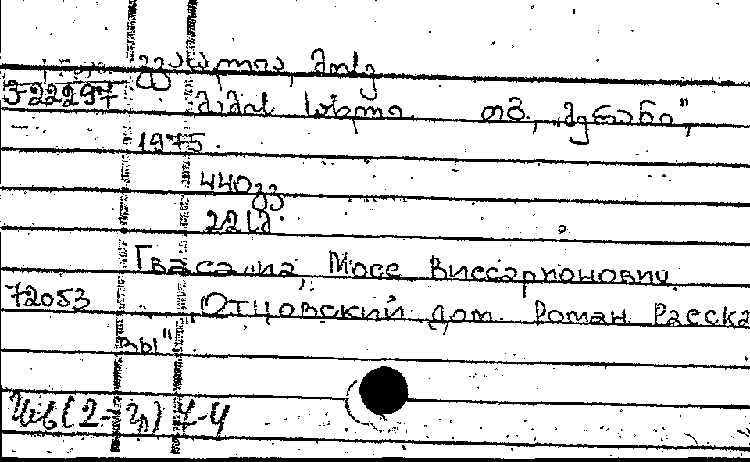 გვასალია, მოსე
322297 მამის სახლი. თბ., „მერანი",
1975.
440გვ
22სმ.
Гвасалиа, Мосе Виссарионович
72053 „Отцовский дом. Роман Расска
зы"
4-4